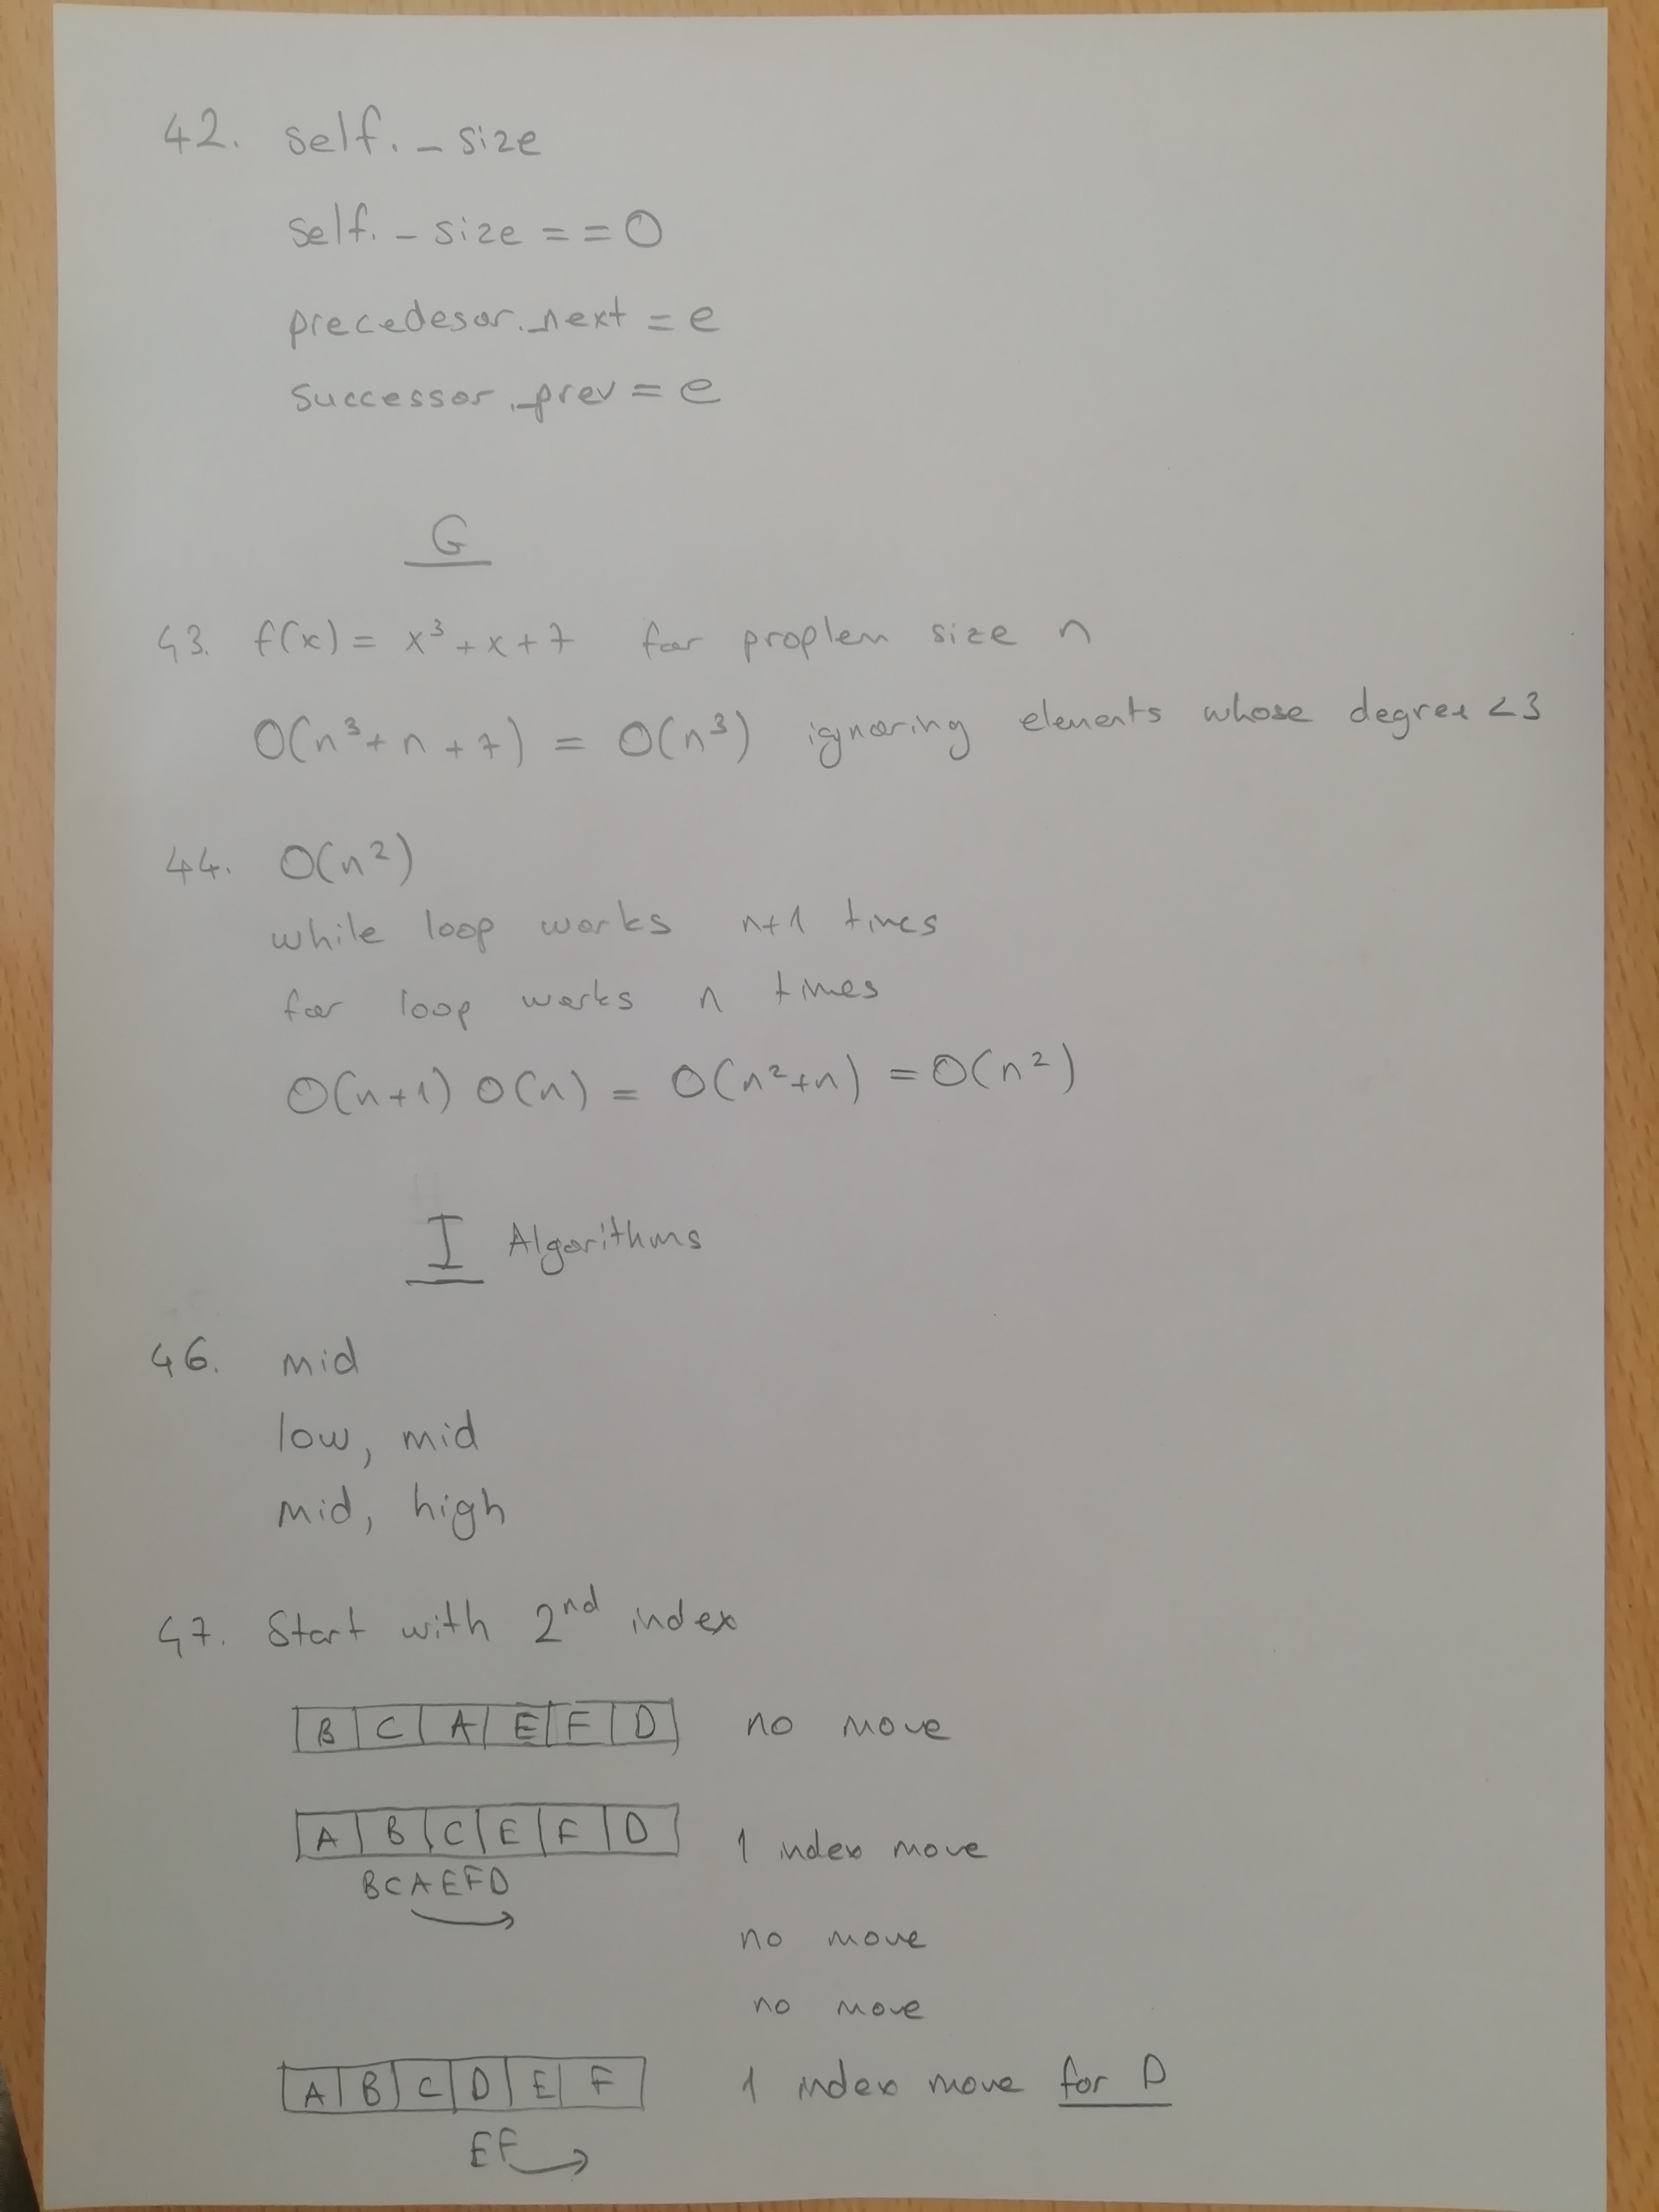 42. self._size
self._size == 0
precedesor._next = e
successor._prev = e
G
43. f(x) = x³ + x + 7 for proplem size n
O(n³ + n + 7) = O(n³) ignoring elements whose degree < 3
44. O(n²)
while loop works n+1 times
for loop works n times
O(n+1) O(n) = O(n²+n) = O(n²)
I Algorithms
46. mid
low, mid
mid, high
47. Start with 2nd index
B C A E F D no move
A B C E F D 1 index move
BCAEFD
no move
no move
A B C D E F 1 index move for D
EF